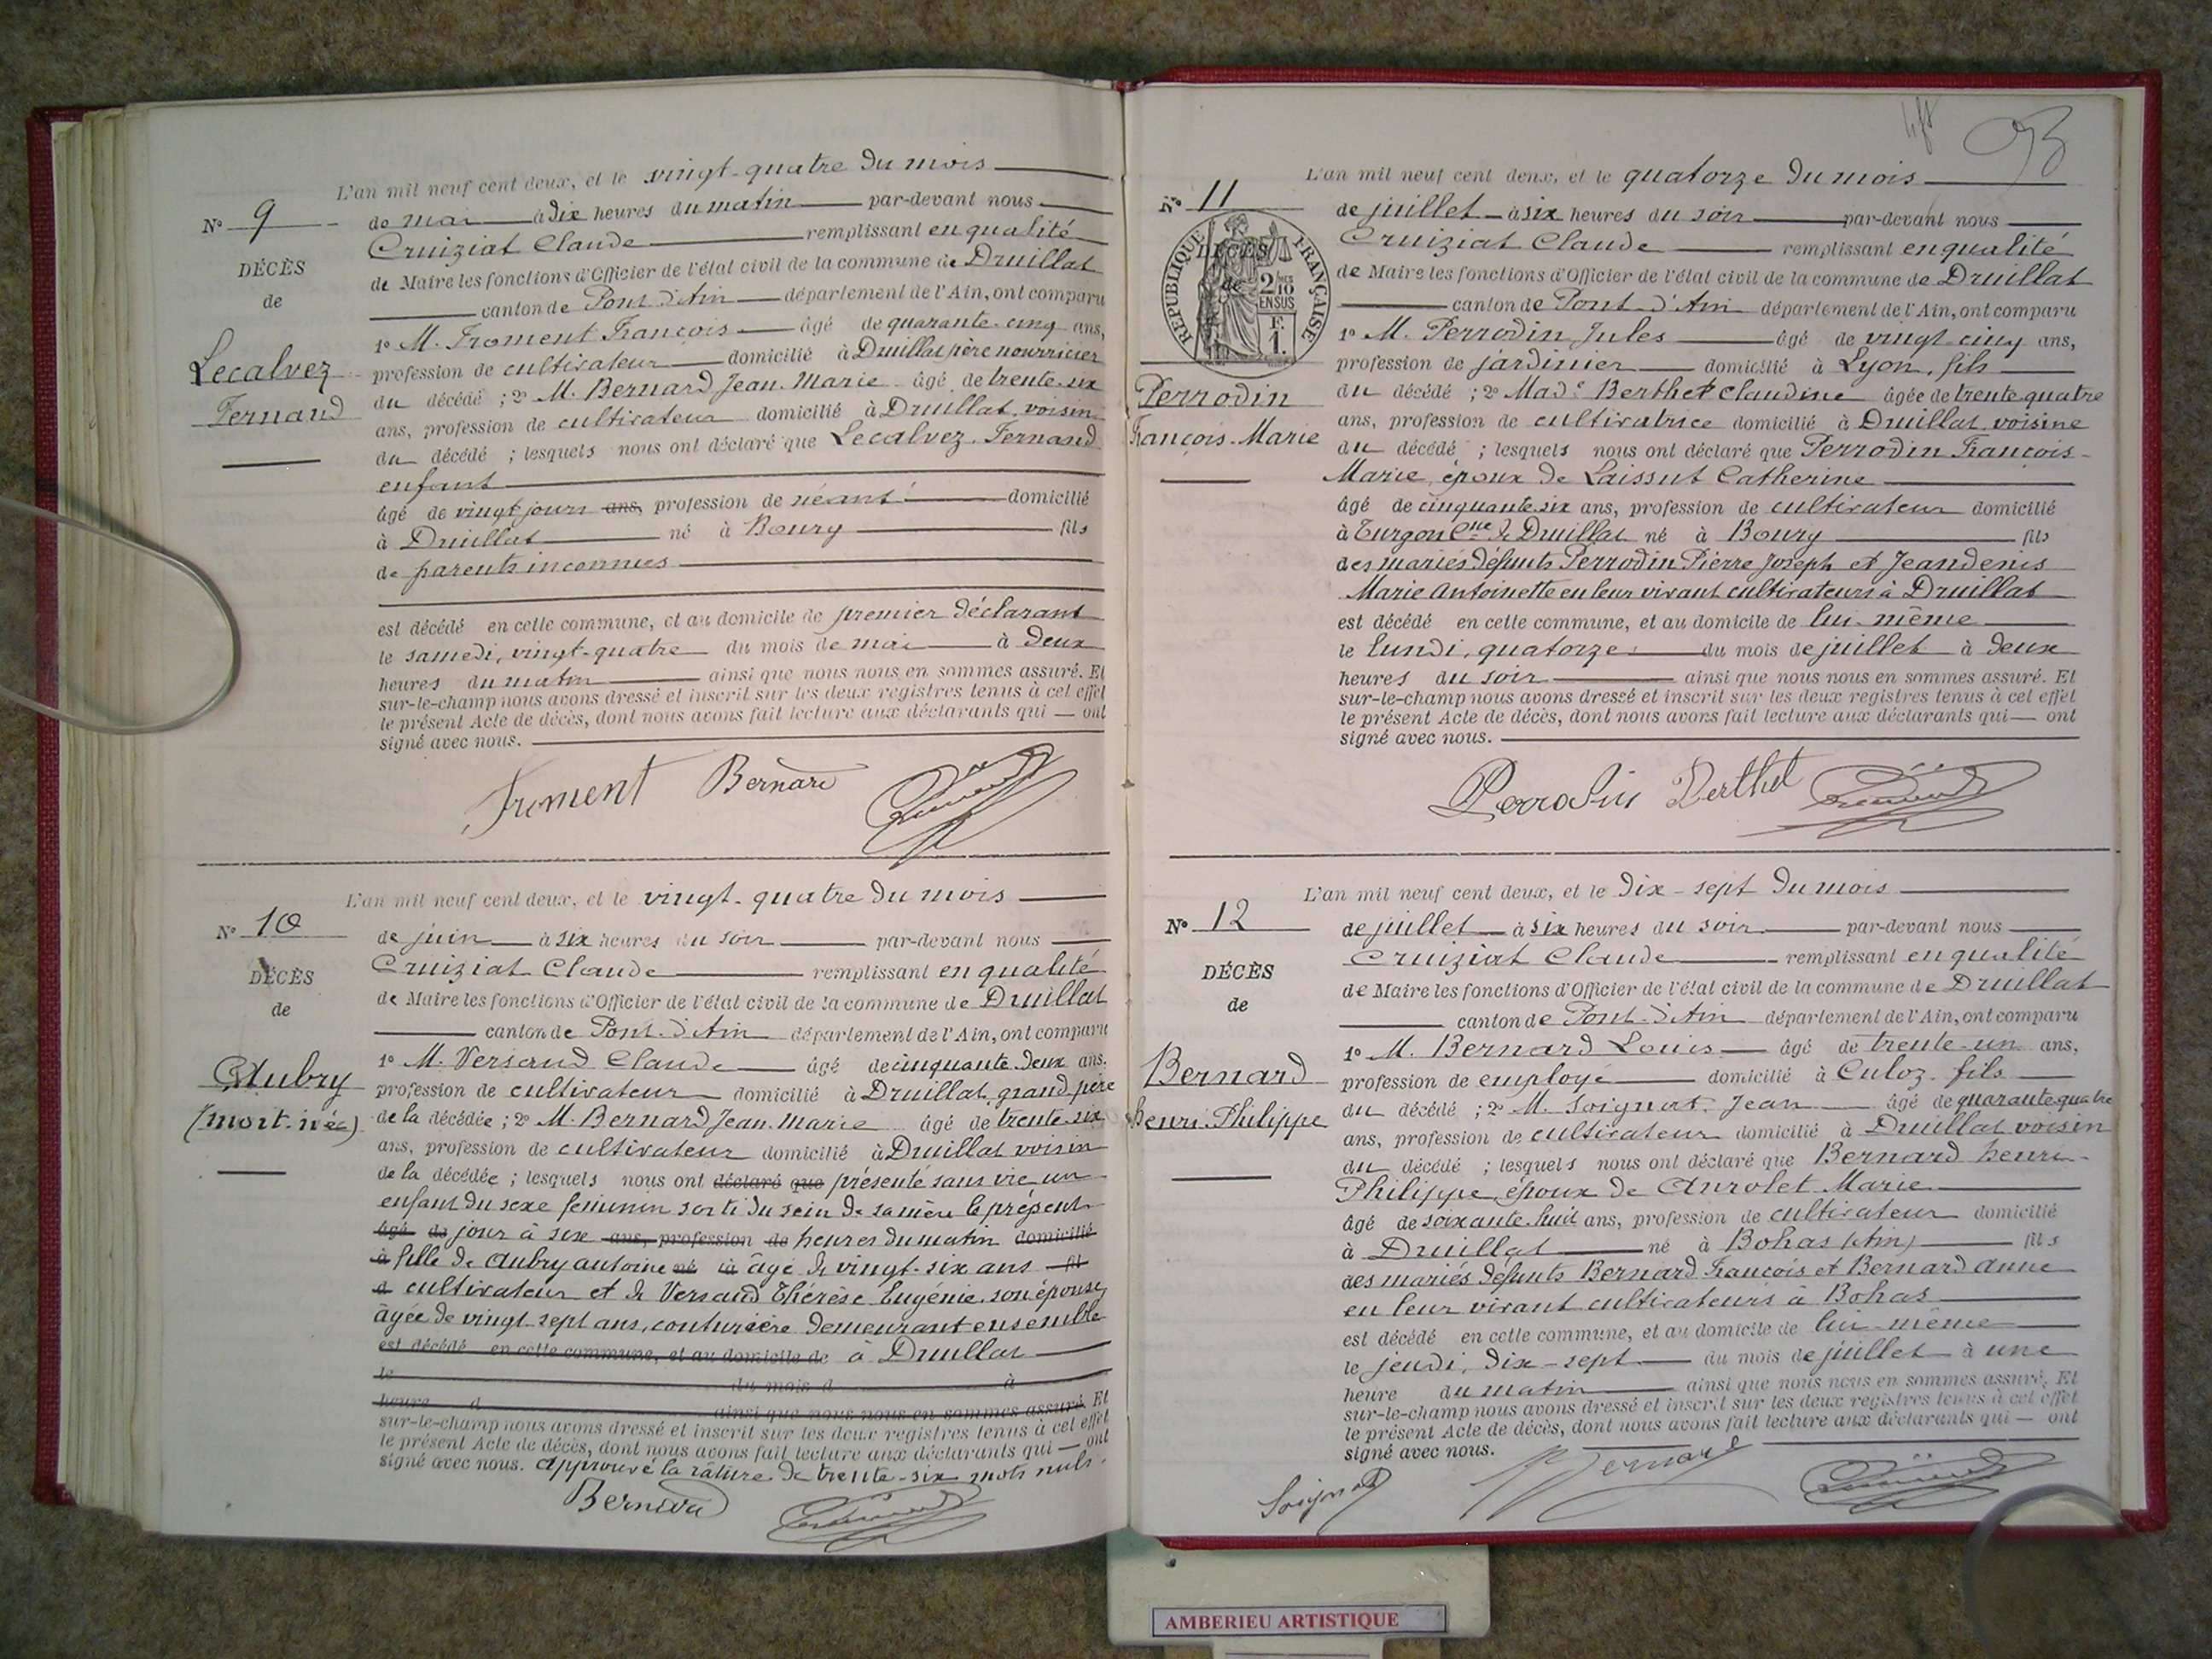 L'an mil neuf cent deux, et le vingt-quatre du mois
N° 9
de mai à dix heures du matin par-devant nous
Cruiziat Claude remplissant en qualité
DÉCÈS
de Maire les fonctions d'Officier de l'état civil de la commune de Druillat
de
canton de Pont d'Ain département de l'Ain, ont comparu
1° M. Froment François âgé de quarante-cinq ans,
Lecalvez
profession de cultivateur domicilié à Druillat père nourricier
du décédé ; 2° M. Bernard Jean-Marie âgé de trente-six
Fernand
ans, profession de cultivateur domicilié à Druillat voisin
du décédé ; lesquels nous ont déclaré que Lecalvez Fernand
enfant
âgé de vingt jours ans, profession de néant domicilié
à Druillat né à Bourg fils
de parents inconnues
est décédé en cette commune, et au domicile de premier déclarant
le samedi, vingt-quatre du mois de mai à deux
heures du matin ainsi que nous nous en sommes assuré. Et
sur-le-champ nous avons dressé et inscrit sur les deux registres tenus à cet effet
le présent Acte de décès, dont nous avons fait lecture aux déclarants qui ont
signé avec nous.
Froment Bernard
L'an mil neuf cent deux, et le vingt-quatre du mois
N° 10
de juin à six heures du soir par-devant nous
Cruiziat Claude remplissant en qualité
DÉCÈS
de Maire les fonctions d'Officier de l'état civil de la commune de Druillat
de
canton de Pont-d'Ain département de l'Ain, ont comparu
1° M. Versaud Claude âgé de cinquante-deux ans.
Aubry
profession de cultivateur domicilié à Druillat grand père
(mort-née)
de la décédée ; 2° M. Bernard Jean-Marie âgé de trente-six
ans, profession de cultivateur domicilié à Druillat voisin
de la décédée ; lesquels nous ont déclaré que présenté sans vie un
enfant du sexe féminin sorti du sein de sa mère le présent
âgé de jour à six ans, profession de heures du matin domicilié
à fille de Aubry Antoine né à âgé de vingt-six ans fil
d cultivateur et de Versaud Thérèse Eugénie son épouse
âgée de vingt-sept ans, couturière demeurant ensemble
est décédé en cette commune, et au domicile de à Druillat
le du mois d à
heure d ainsi que nous nous en sommes assuré. Et
sur-le-champ nous avons dressé et inscrit sur les deux registres tenus à cet effet
le présent Acte de décès, dont nous avons fait lecture aux déclarants qui ont
signé avec nous. Approuvé la râture de trente-six mots nuls.
Bernard
93
L'an mil neuf cent deux, et le quatorze du mois
N° 11
de juillet à six heures du soir par-devant nous
Cruiziat Claude remplissant en qualité
RÉPUBLIQUE FRANÇAISE
DÉCÈS
de
2/10 EN SUS
F. 1.
de Maire les fonctions d'Officier de l'état civil de la commune de Druillat
canton de Pont-d'Ain département de l'Ain, ont comparu
1° M. Perrodin Jules âgé de vingt cinq ans,
profession de jardinier domicilié à Lyon, fils
Perrodin
du décédé ; 2° Made Berthet Claudine âgée de trente quatre
ans, profession de cultivatrice domicilié à Druillat voisine
François-Marie
du décédé ; lesquels nous ont déclaré que Perrodin François-
Marie, époux de Laissut Catherine
âgé de cinquante-six ans, profession de cultivateur domicilié
à Turgon Cne de Druillat né à Bourg fils
des mariés défunts Perrodin Pierre Joseph et Jeandenis
Marie Antoinette en leur vivant cultivateurs à Druillat
est décédé en cette commune, et au domicile de lui-même
le lundi, quatorze du mois de juillet à deux
heures du soir ainsi que nous nous en sommes assuré. Et
sur-le-champ nous avons dressé et inscrit sur les deux registres tenus à cet effet
le présent Acte de décès, dont nous avons fait lecture aux déclarants qui ont
signé avec nous.
Perrodin Berthet
L'an mil neuf cent deux, et le dix-sept du mois
N° 12
de juillet à six heures du soir par-devant nous
Cruiziat Claude remplissant en qualité
DÉCÈS
de Maire les fonctions d'Officier de l'état civil de la commune de Druillat
de
canton de Pont-d'Ain département de l'Ain, ont comparu
1° M. Bernard Louis âgé de trente-un ans,
Bernard
profession de employé domicilié à Culoz. fils
du décédé ; 2° M. Soignat Jean âgé de quarante quatre
Henri-Philippe
ans, profession de cultivateur domicilié à Druillat voisin
du décédé ; lesquels nous ont déclaré que Bernard Henri-
Philippe, époux de Anrolet Marie
âgé de soixante-huit ans, profession de cultivateur domicilié
à Druillat né à Bohas (Ain) fils
des mariés défunts Bernard François et Bernard Anne
en leur vivant cultivateurs à Bohas
est décédé en cette commune, et au domicile de lui-même
le jeudi, dix-sept du mois de juillet à une
heure du matin ainsi que nous nous en sommes assuré. Et
sur-le-champ nous avons dressé et inscrit sur les deux registres tenus à cet effet
le présent Acte de décès, dont nous avons fait lecture aux déclarants qui ont
signé avec nous.
Soignat Bernard
AMBERIEU ARTISTIQUE